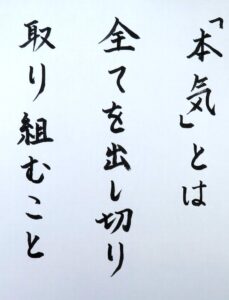 「本気」とは
全てを出し切り
取り組むこと